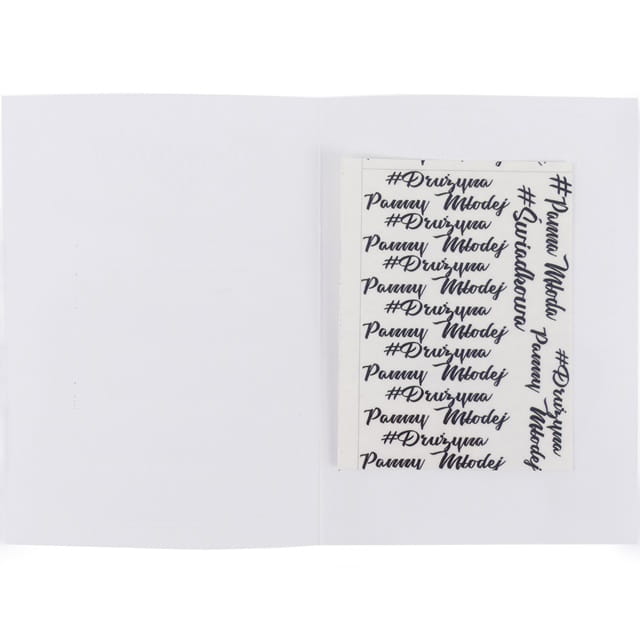 #Drużyna
Panny Młodej
#Drużyna
Panny Młodej
#Drużyna
Panny Młodej
#Drużyna
Panny Młodej
#Drużyna
Panny Młodej
#Drużyna
Panny Młodej
#Drużyna
Panny Młodej
#Panna Młoda
#Świadkowa
#Drużyna
Panny Młodej